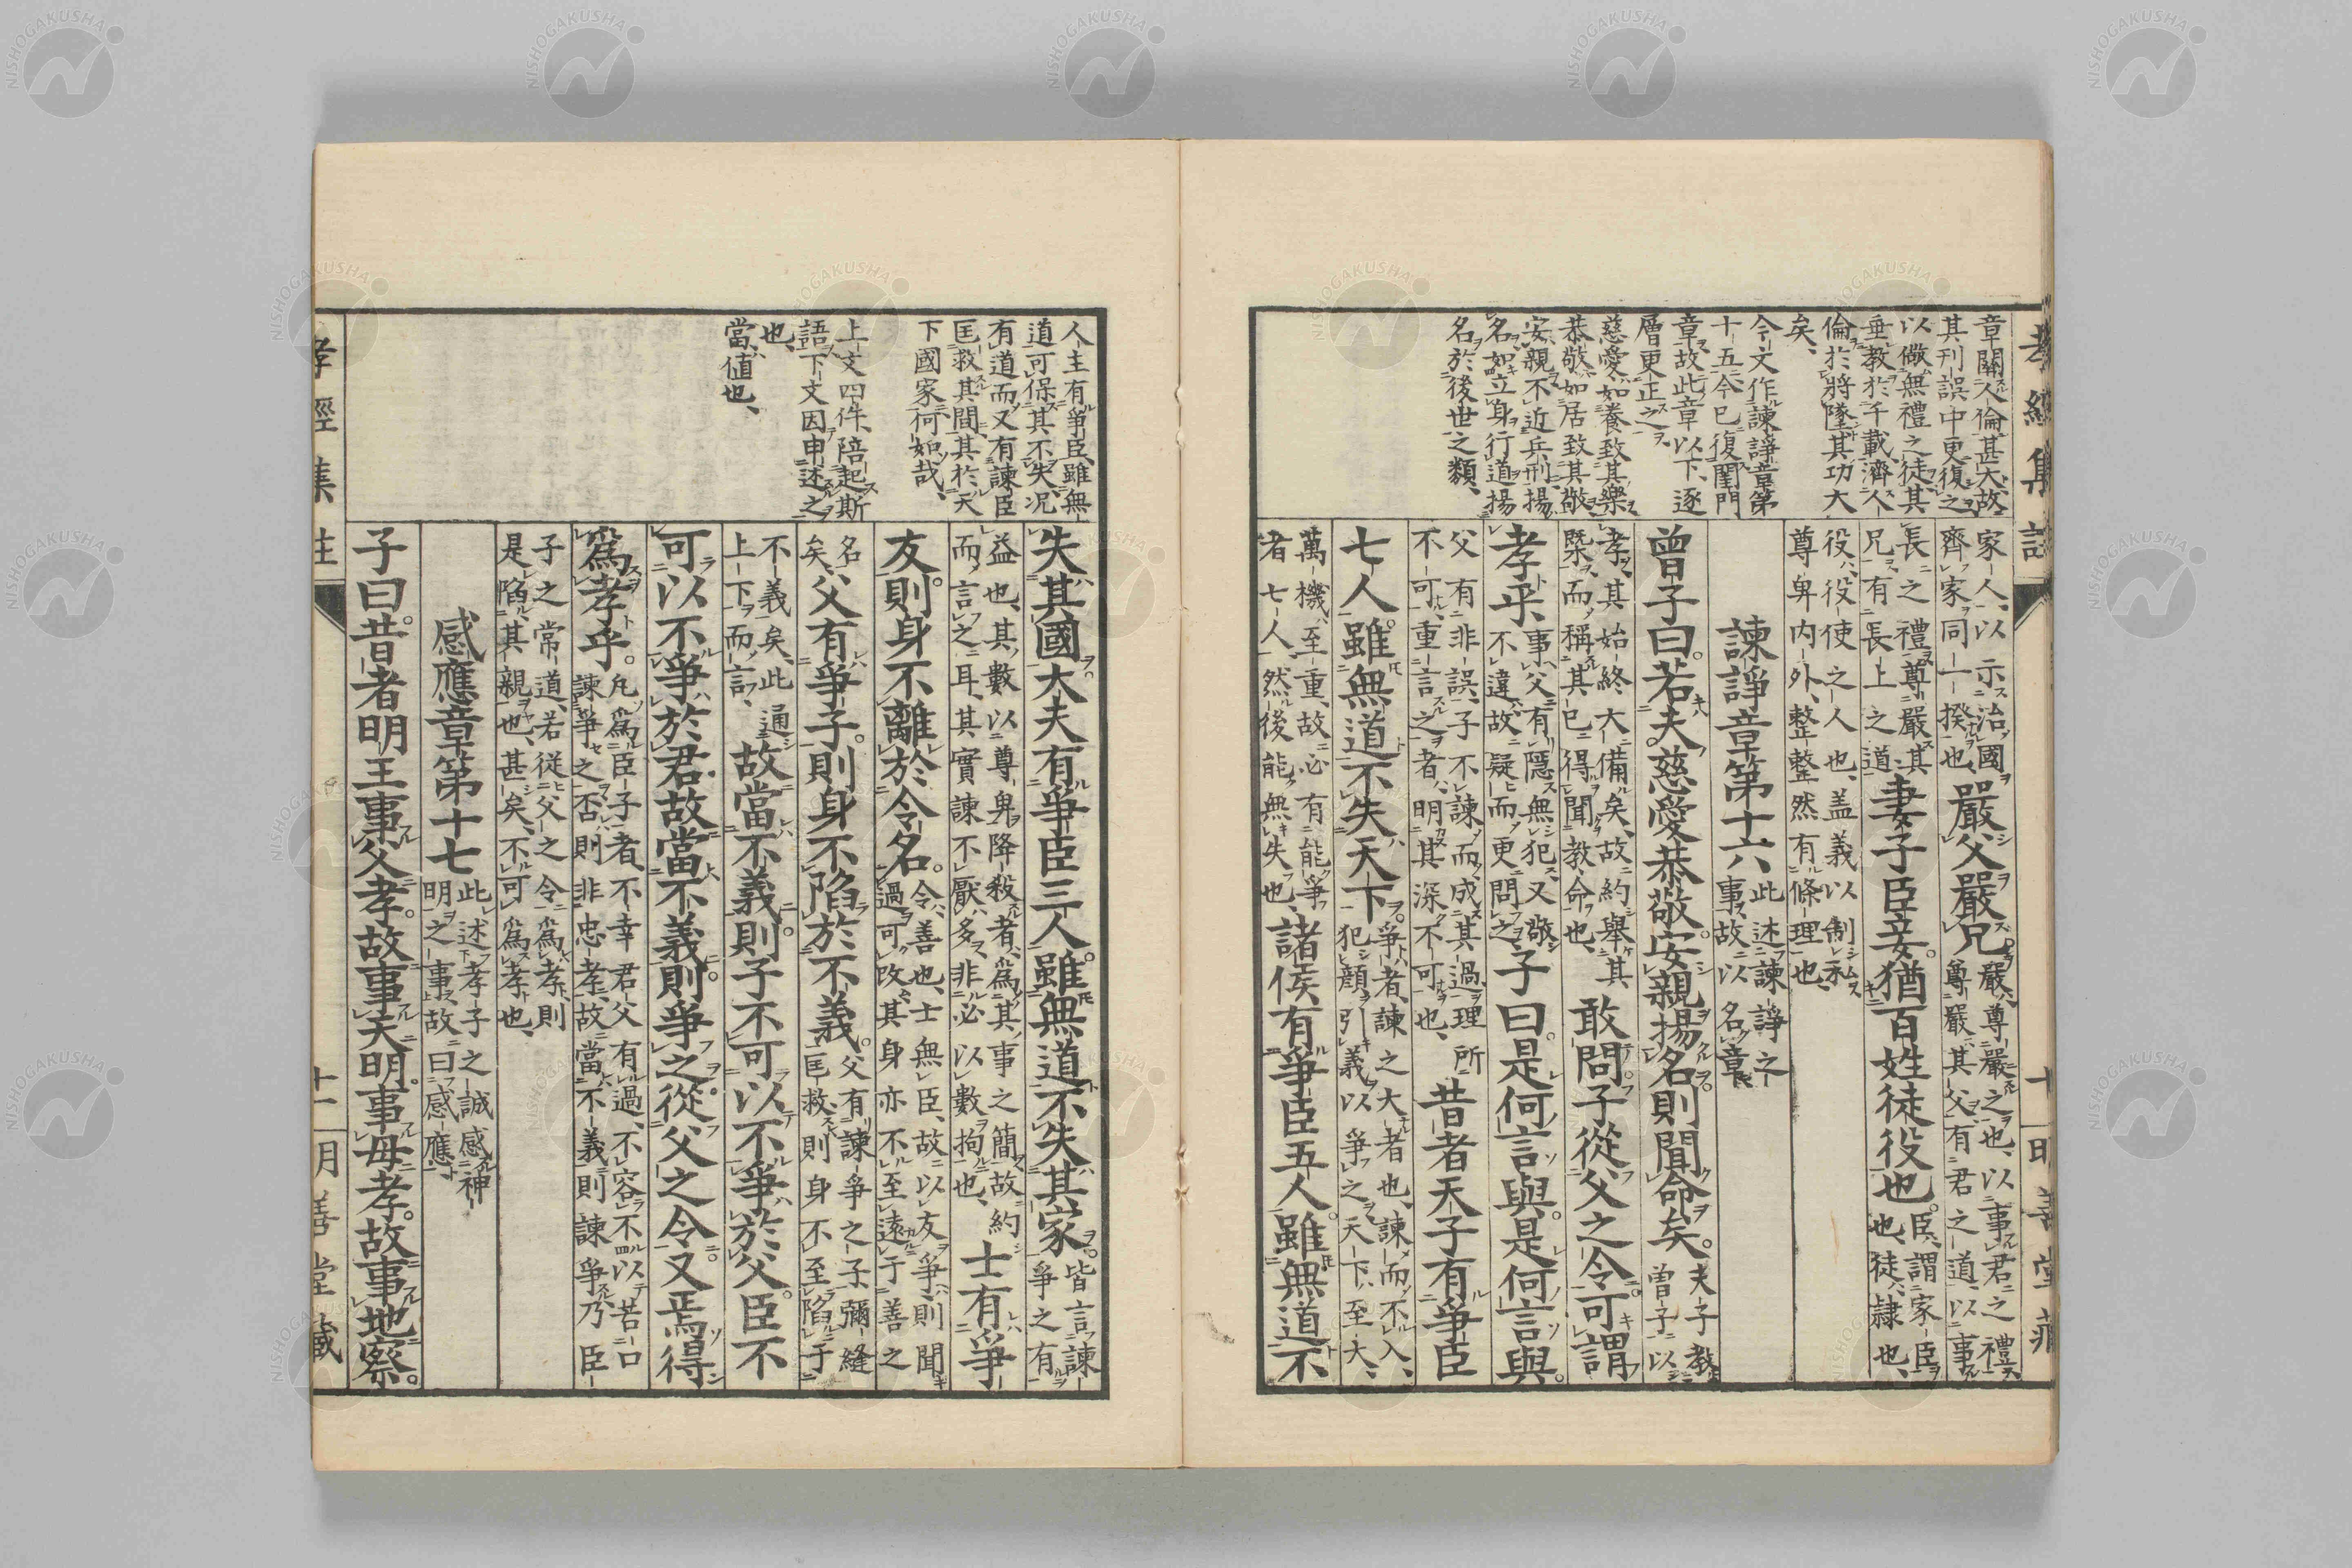 孝經集註 十 明善堂藏
章關人倫甚大故
其刊誤中更復之
以儆無禮之徒其
垂教於千載濟人
倫於將墜其功大
矣、
今文作諫諍章第
十五今已復閨門
章故此章以下逐
層更正之
慈愛如養致其樂
恭敬如居致其敬
安親不近兵刑揚
名如立身行道揚
名於後世之類、
家人以示治國齊家同一揆也、嚴父嚴兄嚴尊嚴之也以事君之禮尊嚴其父有君之道以事
長之禮尊嚴其兄有長上之道妻子臣妾猶百姓徒役也。臣謂家臣也、徒隷也、
役役使之人也、盖義以制私尊卑内外整整然有條理也、
諫諍章第十六此述諫諍之事故以名章
曾子曰。若夫慈愛恭敬安親揚名則聞命矣。夫子教曾子以
孝其始終大備矣、故約舉其槩而稱其已得聞教命也、敢問子從父之令可謂
孝乎、事父有隱無犯又敬不違故疑而更問之子曰。是何言與。是何言與。
父有非誤子不諫而成其過理所不可重言之者明其深不可也、昔者天子有爭臣
七人。雖無道不失天下。爭者諫之大者也、諫而不入、犯顔引義以爭之天下至大、
萬機至重、故必有能爭者七人然後能無失也、諸侯有爭臣五人。雖無道不
人主有爭臣雖無
道可保其不失况
有道而又有諫臣
匡救其間其於天
下國家何如哉、
上文四件陪起斯
語下文因申述之
也、
當値也、
失其國大夫有爭臣三人。雖無道不失其家。皆言諫爭之有
益也、其數以尊卑降殺者爲其事之簡故約而言之耳、其實諫不厭多、非必以數拘也、士有爭
友。則身不離於令名。令善也、士無臣、故以友爭則聞過可改其身亦不至遠于善之
名矣、父有爭子。則身不陷於不義。父有諫爭之子彌縫匡救則身不至陷于
不義矣、此通上下而言、故當不義。則子不可以不爭於父。臣不
可以不爭於君故當不義則爭之從父之令又焉得
爲孝乎。凡爲臣子者不幸君父有過不容不以苦口諫爭之否則非忠孝、故當不義則諫爭乃臣
子之常道、若從父之令爲孝則是陷其親也、甚矣、不可爲孝也、
感應章第十七此述孝子之誠感神明之事故曰感應
子曰。昔者明王事父孝。故事天明。事母孝。故事地察。
孝經集註 十一 明善堂藏
NISHOGAKUSHA